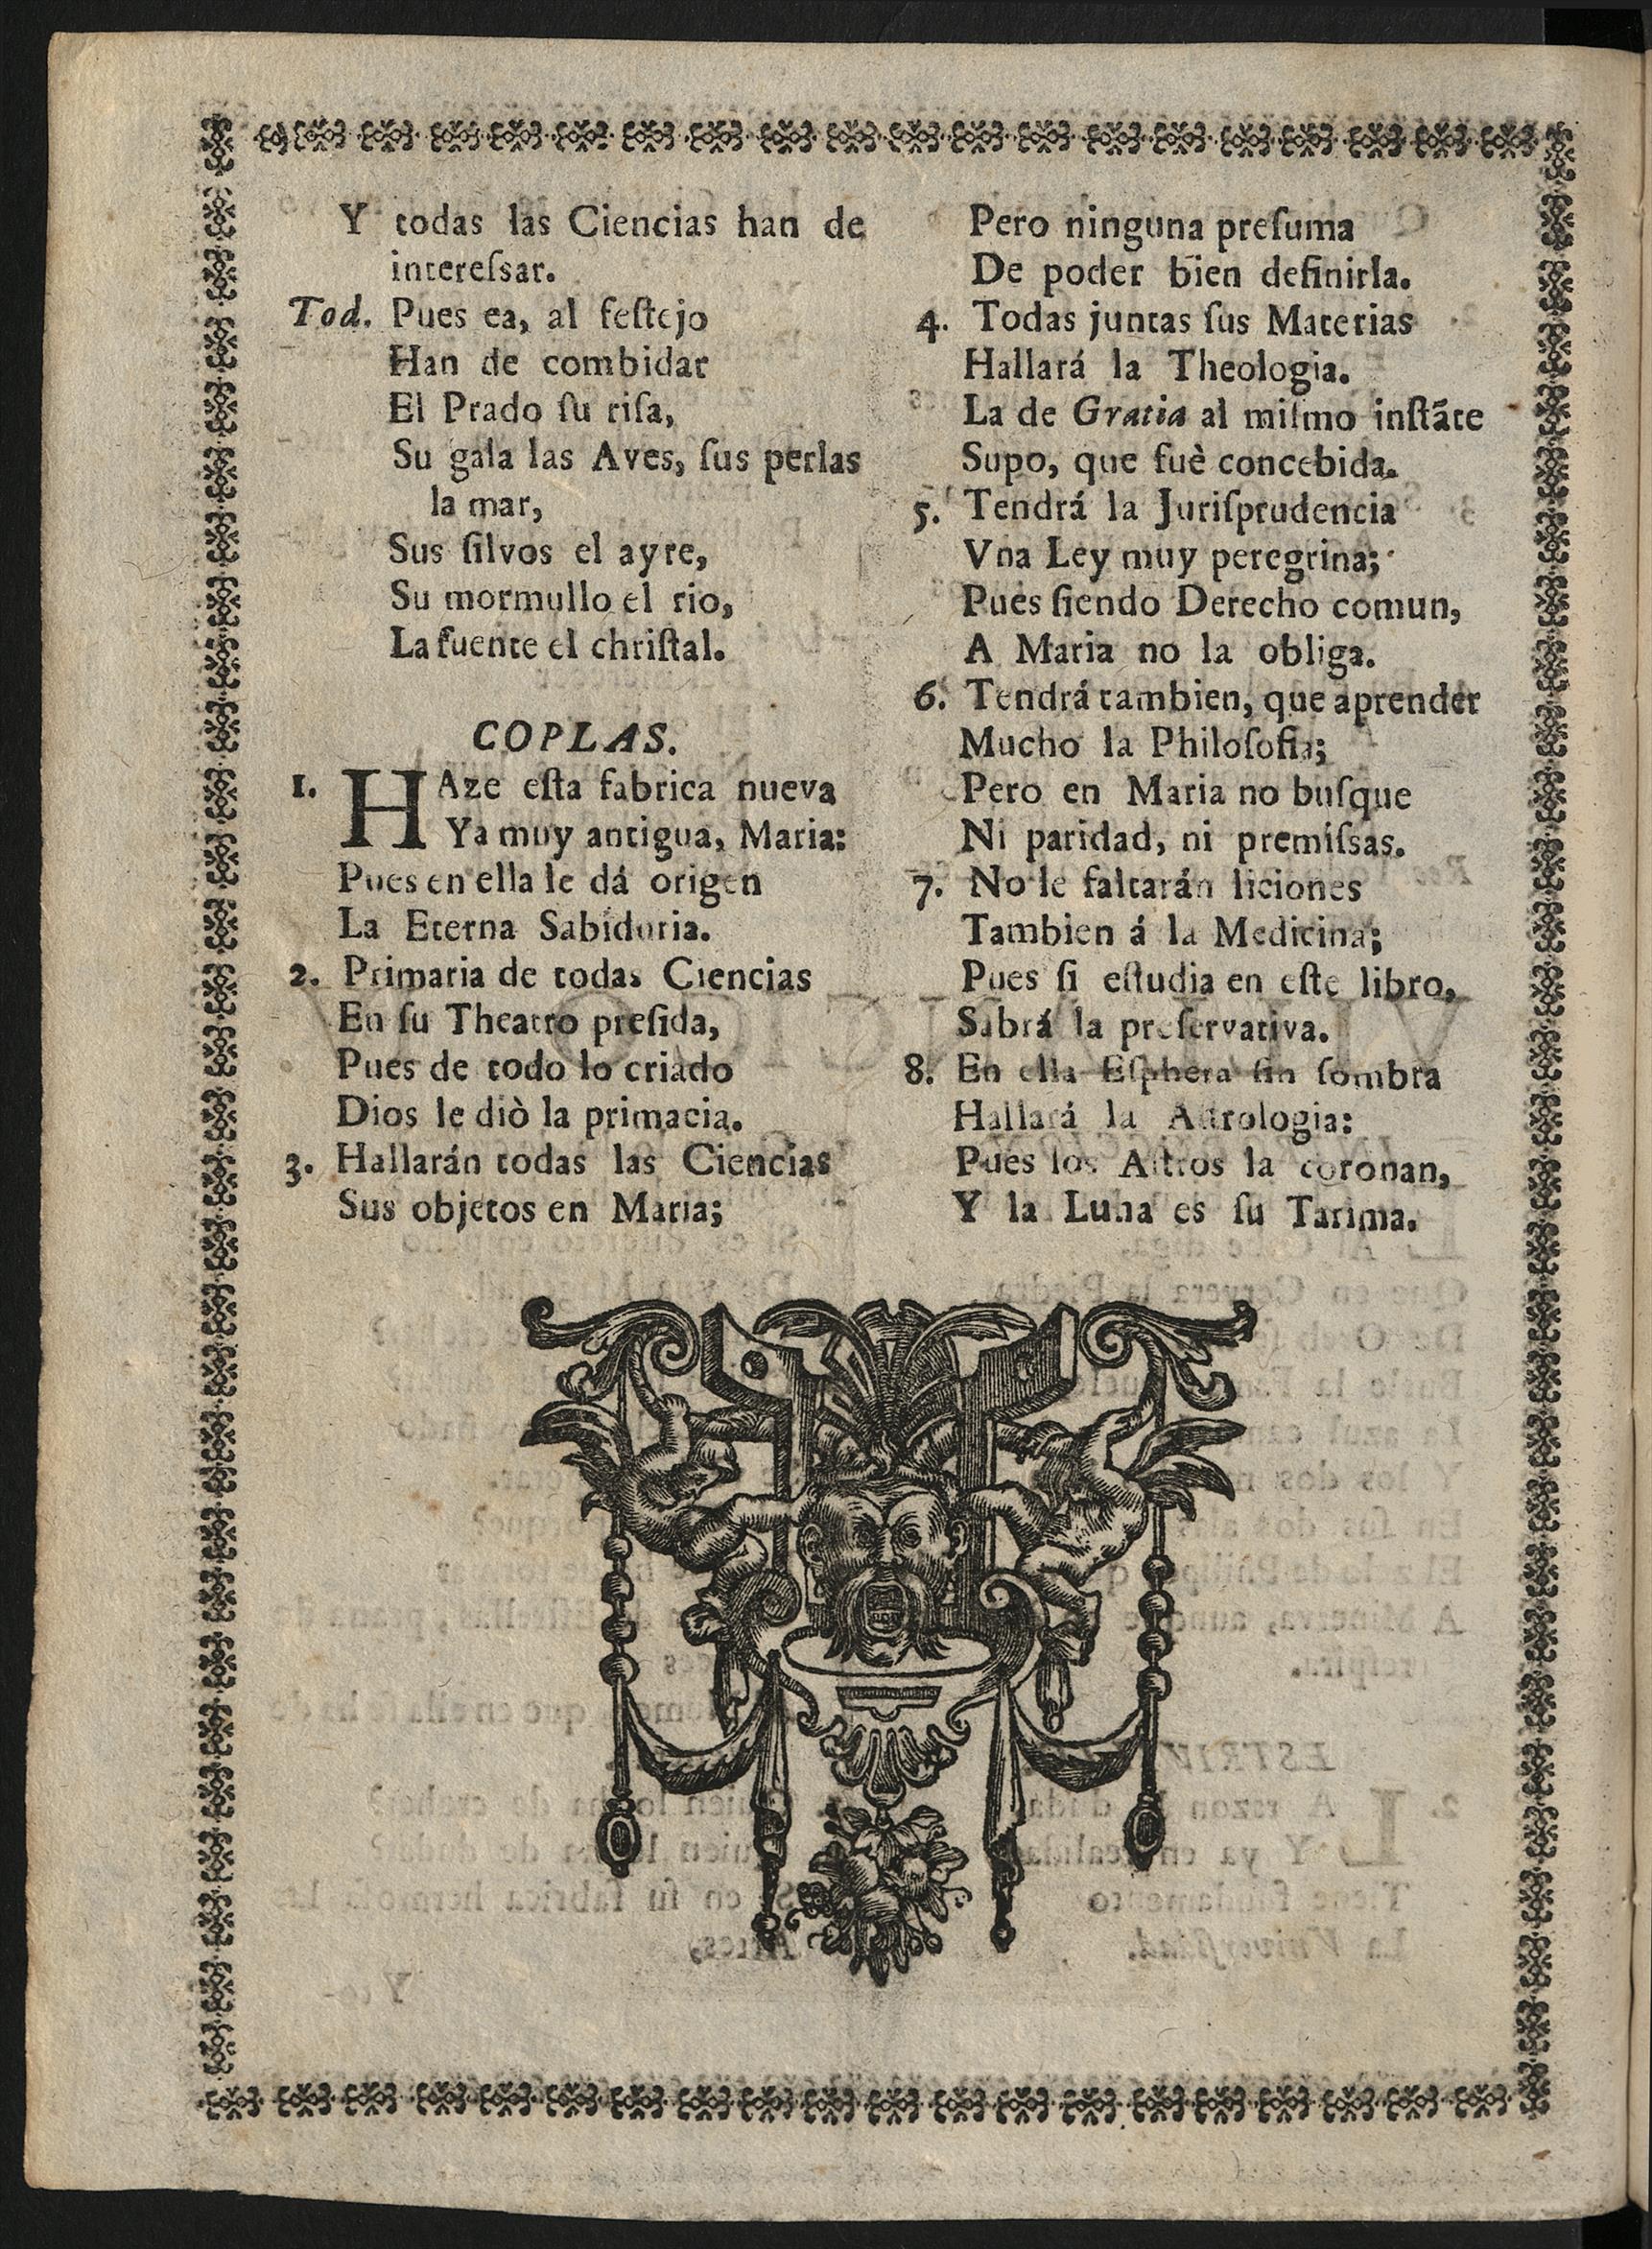 Y todas las Ciencias han de
intereſsar.
Tod. Pues ea, al feſtejo
Han de combidar
El Prado ſu riſa,
Su gala las Aves, ſus perlas
la mar,
Sus ſilvos el ayre,
Su mormullo el rio,
La fuente el chriſtal.
COPLAS.
1. HAze eſta fabrica nueva
Ya muy antigua, Maria:
Pues en ella le dá origen
La Eterna Sabiduria.
2. Primaria de todas Ciencias
En ſu Theatro preſida,
Pues de todo lo criado
Dios le diò la primacia.
3. Hallarán todas las Ciencias
Sus objetos en Maria;
Pero ninguna preſuma
De poder bien definirla.
4. Todas juntas ſus Materias
Hallará la Theologia.
La de Gratia al miſmo inſtãte
Supo, que fuè concebida.
5. Tendrá la Juriſprudencia
Vna Ley muy peregrina;
Pues ſiendo Derecho comun,
A Maria no la obliga.
6. Tendrá tambien, que aprender
Mucho la Philoſofia;
Pero en Maria no buſque
Ni paridad, ni premiſsas.
7. No le faltarán liciones
Tambien á la Medicina;
Pues ſi eſtudia en eſte libro,
Sabrá la preſervativa.
8. En ella Eſphera ſin ſombra
Hallará la Aſtrologia:
Pues los Aſtros la coronan,
Y la Luna es ſu Tarima.